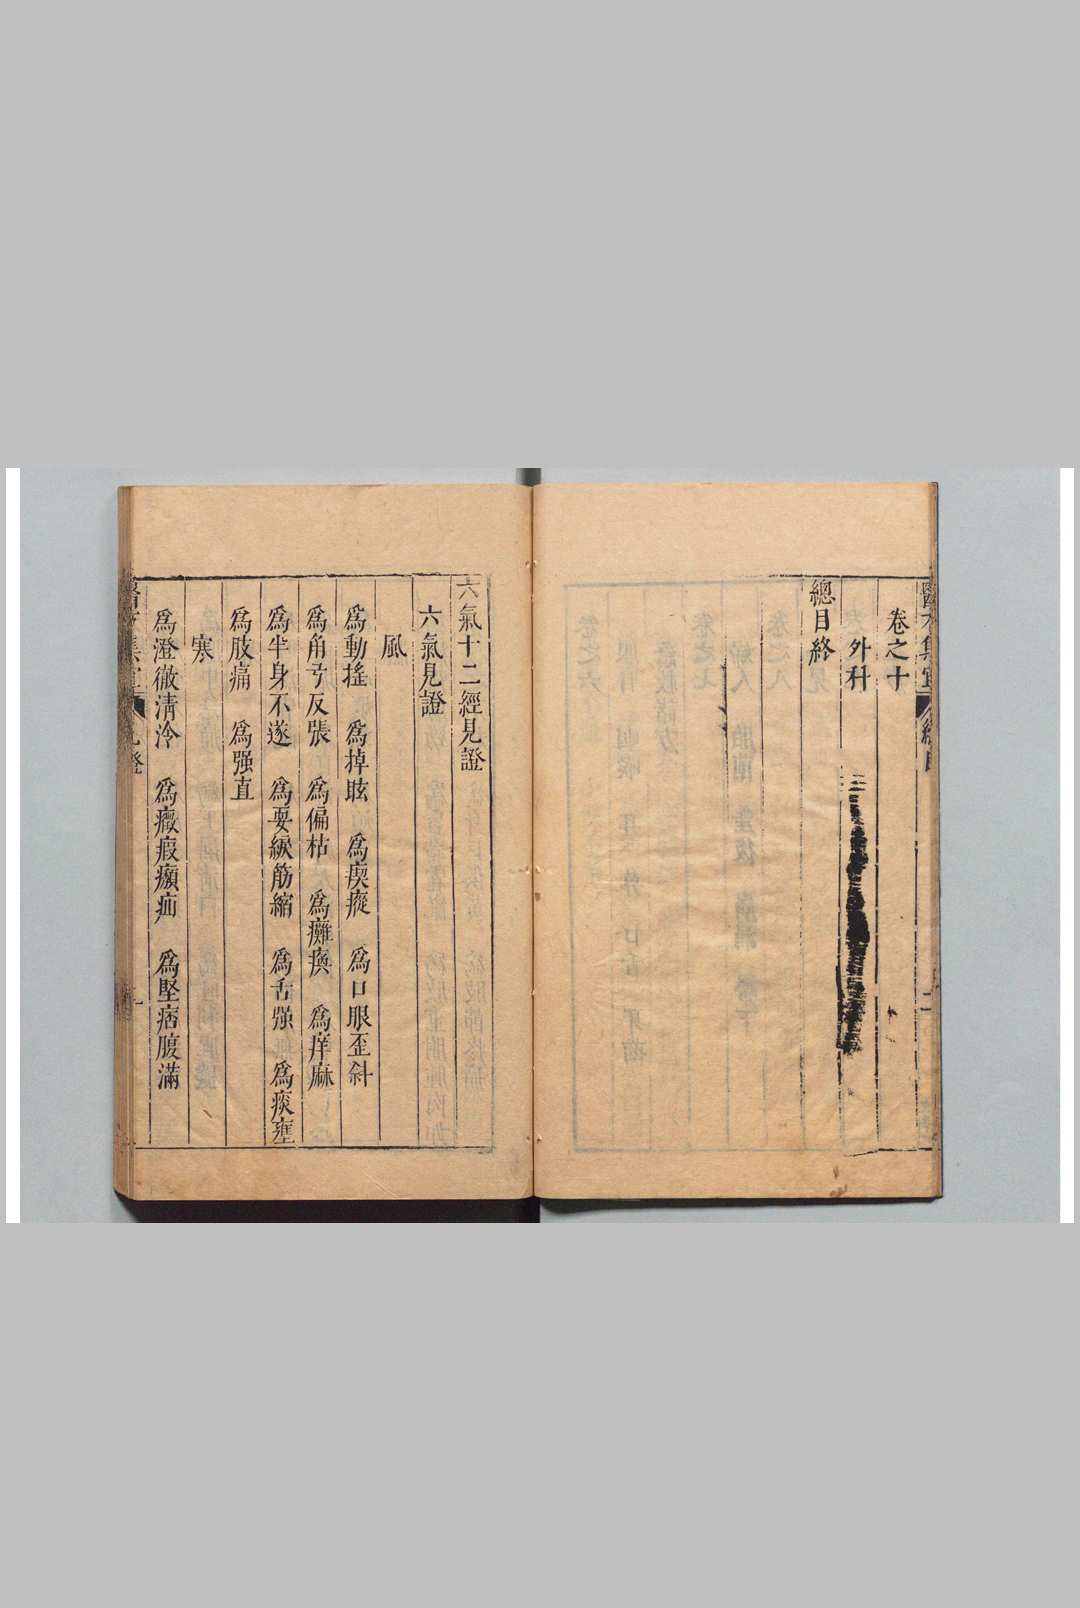 卷之十
外科
總目終
六氣十二經見證
六氣見證
風
爲動搖　爲掉眩　爲瘈瘲　爲口眼歪斜
爲角弓反張　爲偏枯　爲癱瘓　爲痒麻
爲半身不遂　爲耎緛筋縮　爲舌强　爲痰壅
爲肢痛　爲强直
寒
爲澄徹清冷　爲癥瘕㿗疝　爲堅痞腹滿